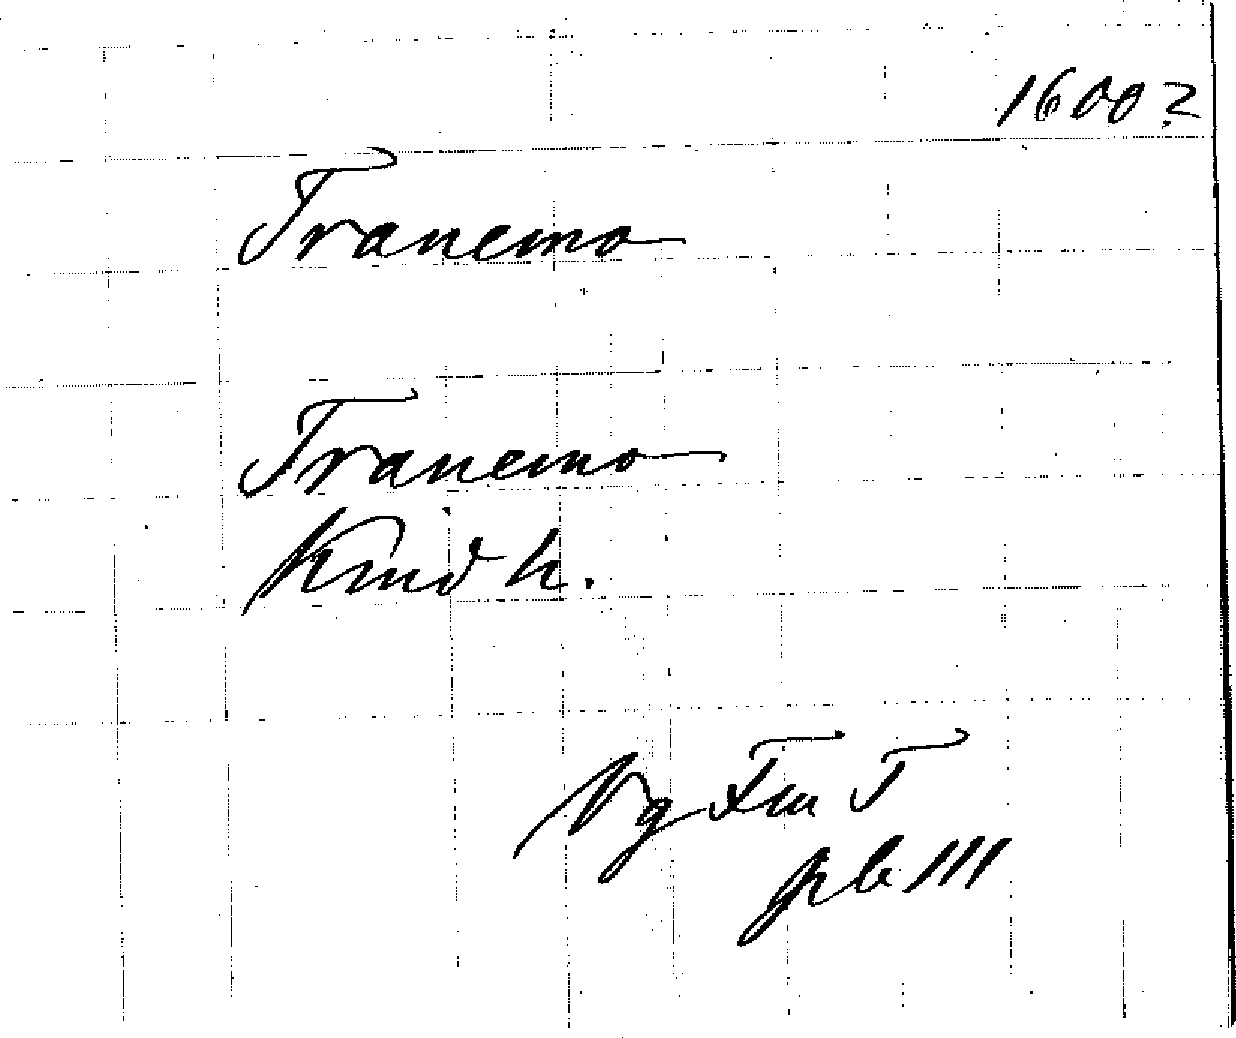 1600?
Tranemo
Tranemo
Kind h.
Vg Fm T
pb III